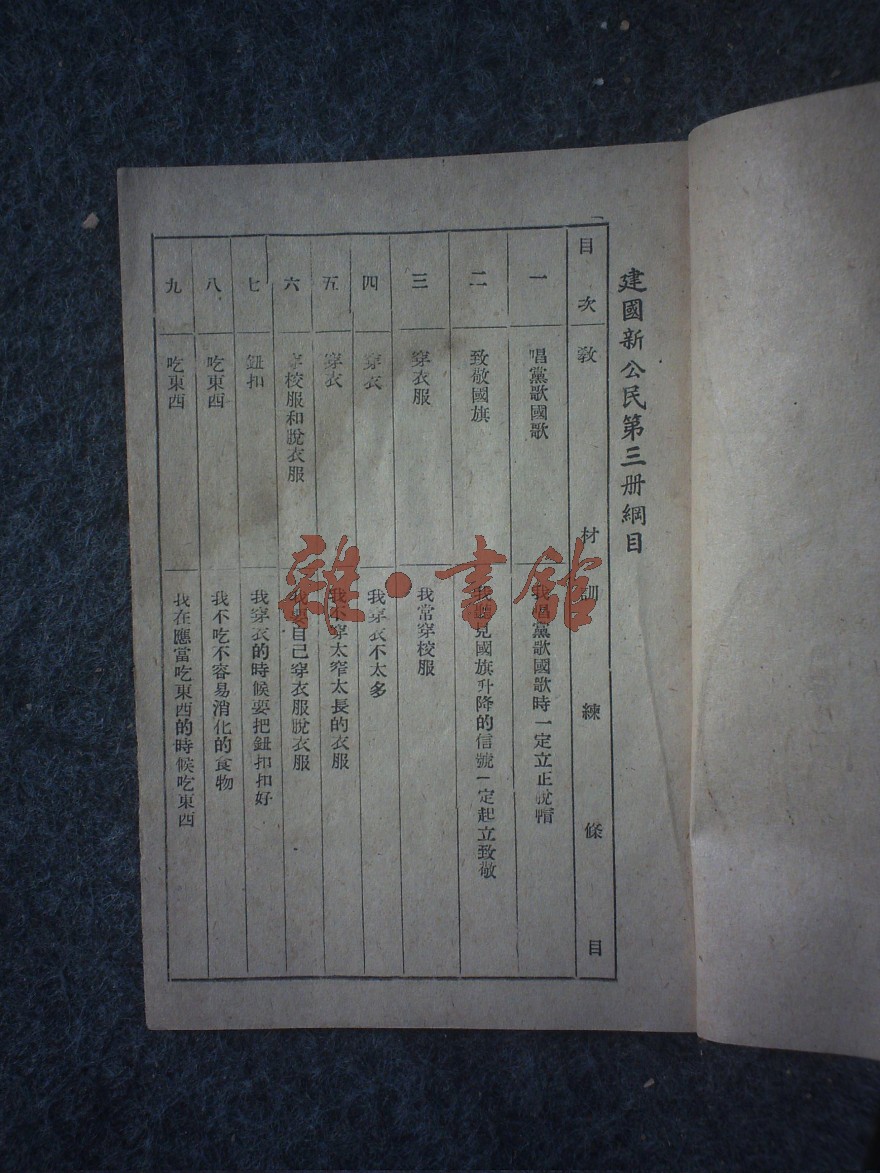 建國新公民第三册綱目
目次 教材 訓練條目
一 唱黨歌國歌 我唱黨歌國歌時一定立正脫帽
二 致敬國旗 我聽見國旗升降的信號一定起立致敬
三 穿衣服 我常穿校服
四 穿衣 我穿衣不太多
五 穿衣 我不穿太窄太長的衣服
六 穿校服和脫衣服 我要自己穿衣服脫衣服
七 鈕扣 我穿衣的時候要把鈕扣扣好
八 吃東西 我不吃不容易消化的食物
九 吃東西 我在應當吃東西的時候吃東西
雜·書館